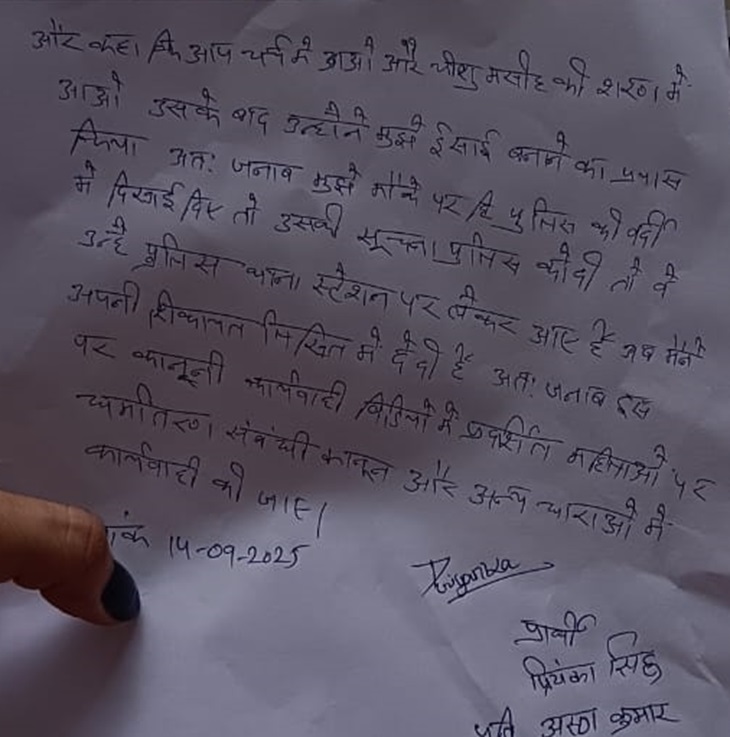 और कहा कि आप चर्च में आओ और यीशु मसीह की शरण में
आओ उसके बाद उन्होने मुझे ईसाई बनाने का प्रयास
किया अतः जनाब मुझे मौके पर हि पुलिस की वर्दी
में दिखाई दिए तो उसकी सूचना पुलिस को दी तो वे
उन्हे पुलिस थाना स्टेशन पर लेकर आए हैं अब मैंने
अपनी शिकायत लिखित में दे दी है अतः जनाब इस
पर कानूनी कार्यवाही विडियो में प्रदर्शित महिलाओं पर
धर्मांतरण संबंधी कानून और अन्य धाराओ में
कार्यवाही की जाए।
ांक 14-09-2025
Priyanka
प्रार्थी
प्रियंका सिंह
पति कुमार